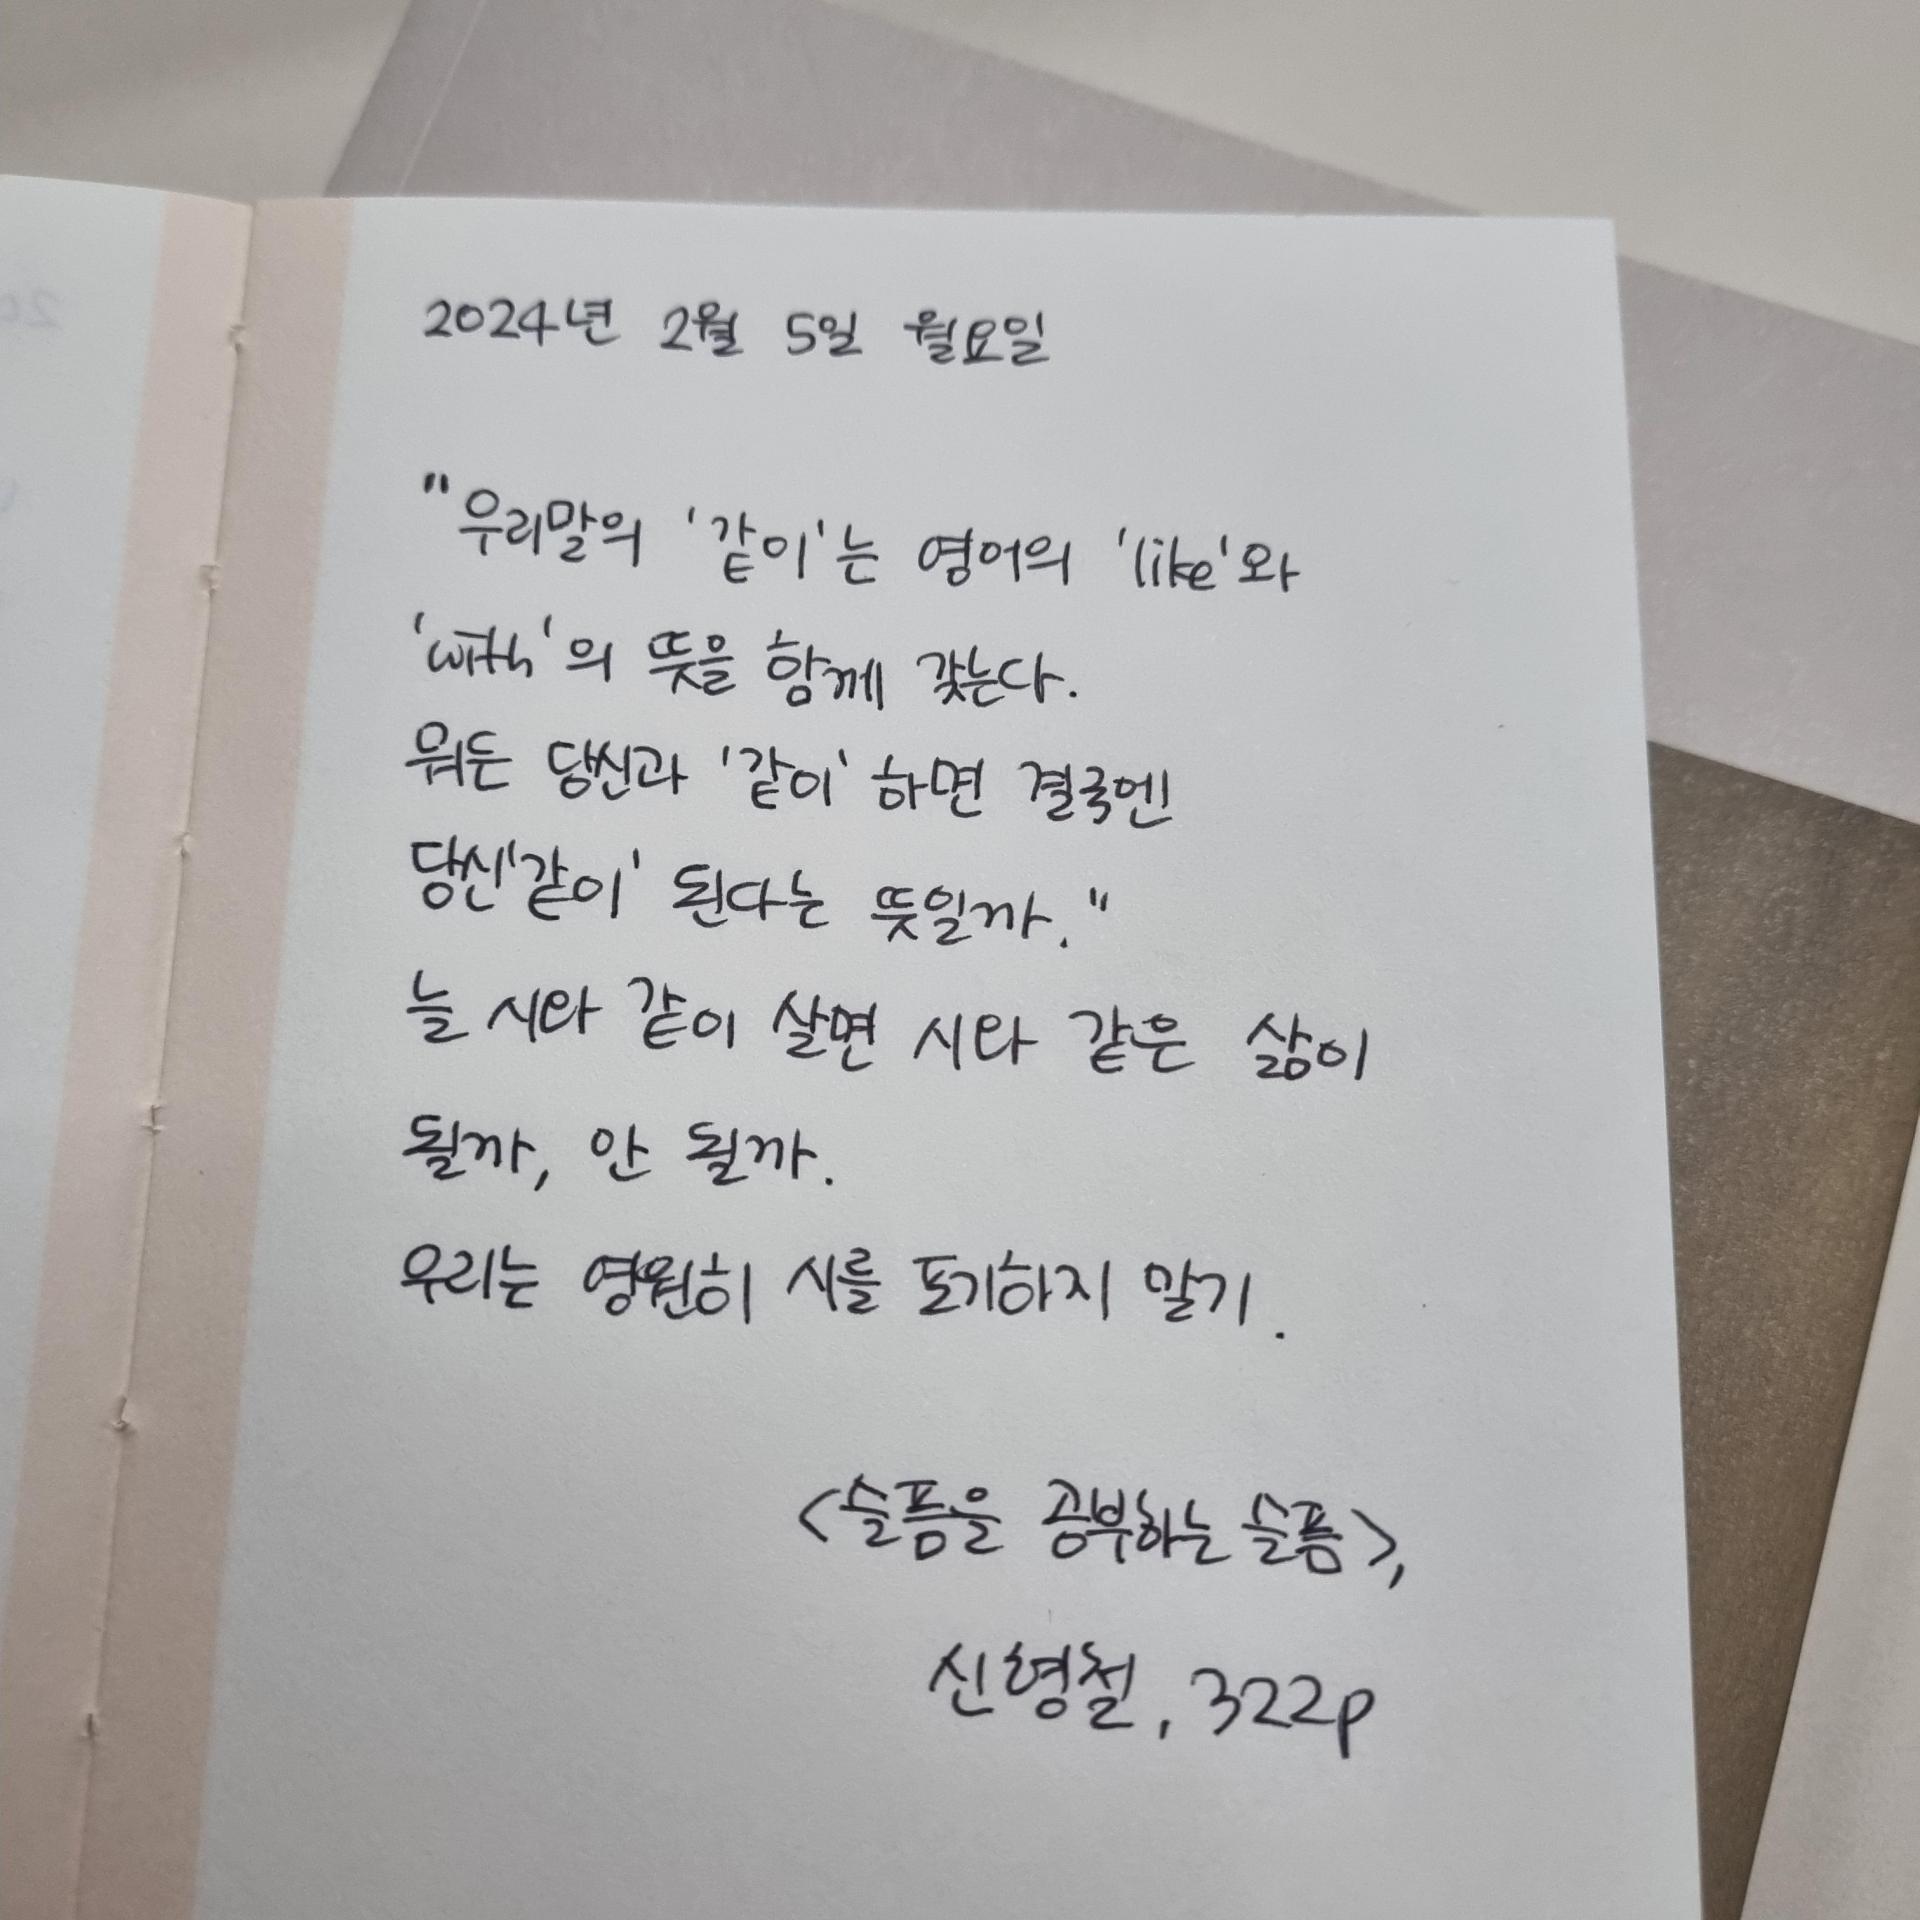 2024년 2월 5일 월요일
"우리말의 '같이'는 영어의 'like'와
'with'의 뜻을 함께 갖는다.
뭐든 당신과 '같이' 하면 결국엔
당신'같이' 된다는 뜻일까."
늘 시와 같이 살면 시와 같은 삶이
될까, 안 될까.
우리는 영원히 시를 포기하지 말기.
<슬픔을 공부하는 슬픔>,
신형철, 322p